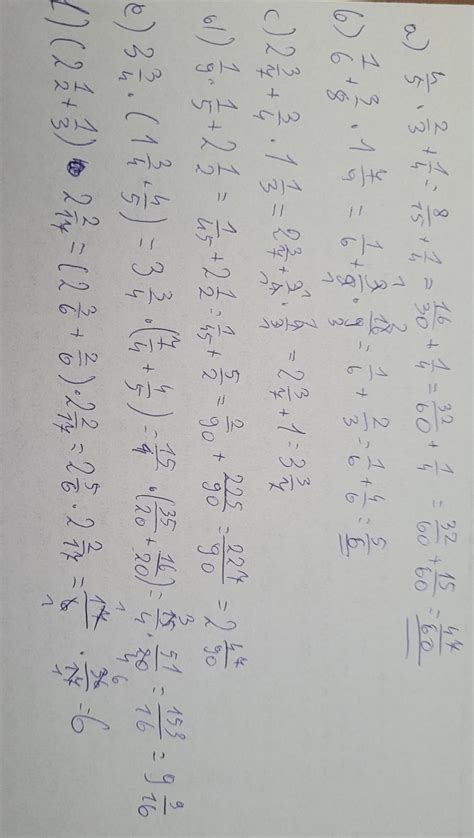 a) 4/5 · 2/3 + 1/4 = 8/15 + 1/4 = 16/30 + 1/4 = 32/60 + 1/4 = 32/60 + 15/60 = 47/60
b) 1/6 + 3/8 · 1 7/9 = 1/6 + 3/8 · 16/9 = 1/6 + 2/3 = 1/6 + 4/6 = 5/6
c) 2 3/7 + 3/4 · 1 1/3 = 2 3/7 + 3/4 · 4/3 = 2 3/7 + 1 = 3 3/7
d) 1/9 · 1/5 + 2 1/2 = 1/45 + 2 1/2 = 1/45 + 5/2 = 2/90 + 225/90 = 227/90 = 2 47/90
e) 3 3/4 · (1 3/4 · 4/5) = 3 3/4 · (7/4 + 4/5) = 15/4 · (35/20 + 16/20) = 15/4 · 51/20 = 153/16 = 9 9/16
f) (2 1/2 + 1/3) · 2 2/17 = (2 3/6 + 2/6) · 2 2/17 = 2 5/6 · 2 2/17 = 17/6 · 36/17 = 6